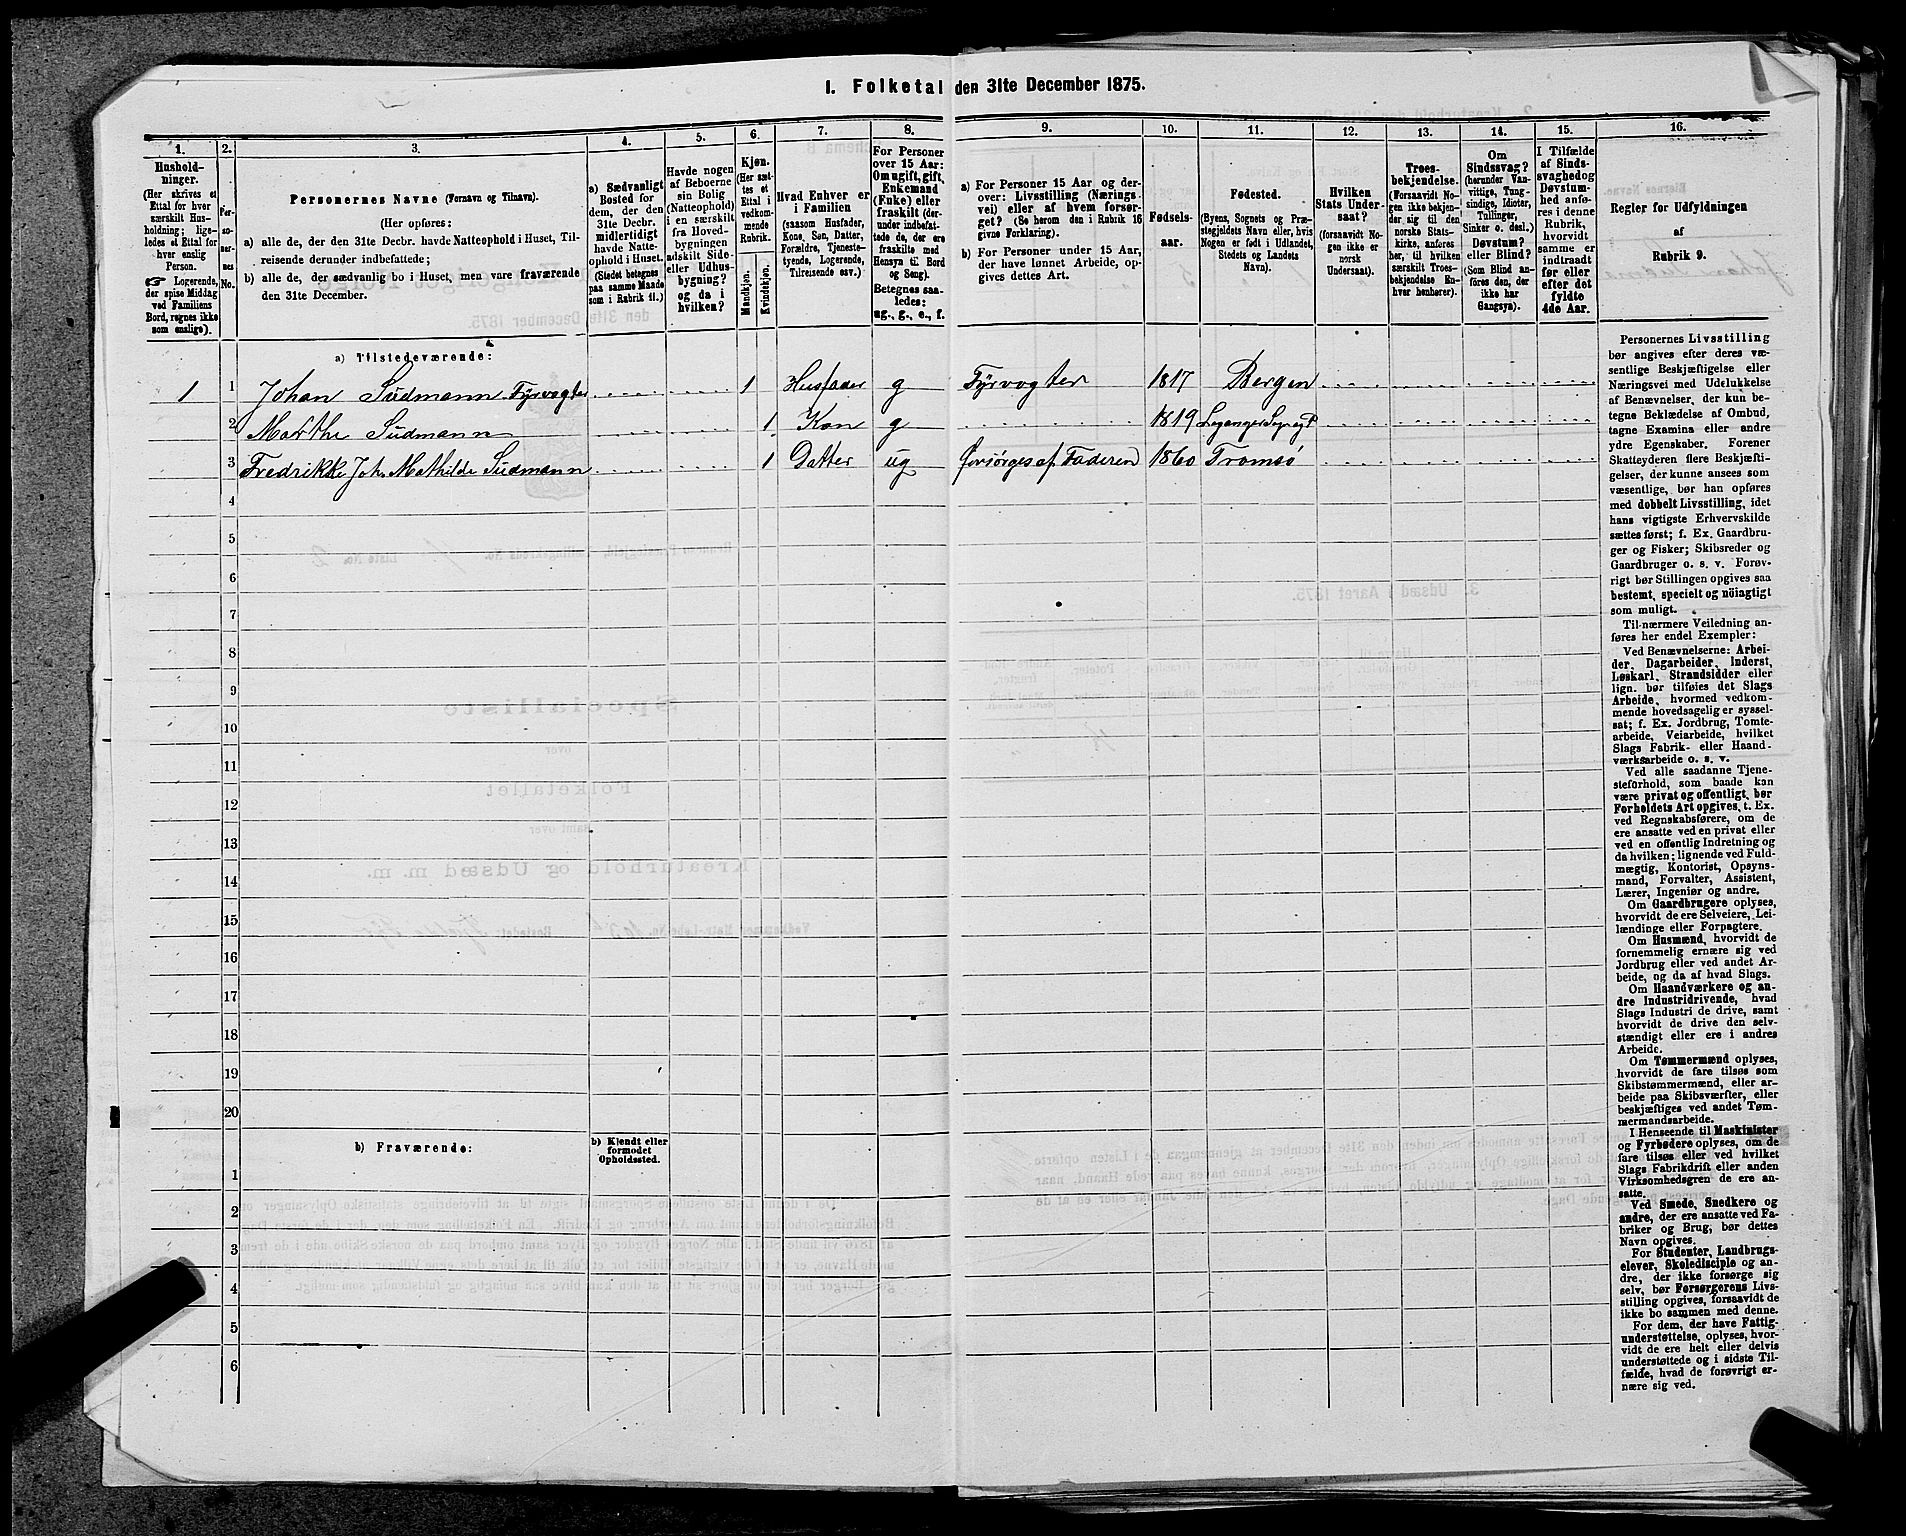 1. Folketal den 31te December 1875.
1. 2. 3. 4. 5. 6. 7. 8. 9. 10. 11. 12. 13. 14. 15. 16.
Husholdninger.
(Her skrives et
Ettal for hver
særskilt Husholdning; ligeledes et Ettal for
hver enslig
Person.
☞ Logerende,
der spise Middag
ved Familiens
Bord, regnes ikke
som enslige).
Personernes No.
Personernes Navne (Fornavn og Tilnavn).
(Her opføres:
a) alle de, der den 31te Decbr. havde Natteophold i Huset, Tilreisende derunder indbefattede;
b) alle de, der sædvanlig bo i Huset, men vare fraværende
den 31te December.
a) Sædvanligt
Bosted for
dem, der den
31te Decbr.
midlertidigt
havde Natteophold i Huset.
(Stedet betegnes
paa samme Maade
som i Rubrik 11.)
Havde nogen
af Beboerne
sin Bolig
(Natteophold)
i en særskilt
fra Hovedbygningen
adskilt Side-
eller Udhusbygning?
og da i
hvilken?
Kjøn.
(Her sættes et
Ettal i
vedkommende
Rubrik.
Mandkjøn.
Kvindekjøn.
Hvad Enhver er
i Familien
(saasom Husfader,
Kone, Søn, Datter,
Forældre, Tjenestetyende, Logerende,
Tilreisende osv.)
For Personer
over 15 Aar:
Om ugift, gift,
Enkemand
(Enke) eller
fraskilt (derunder indbefattede de, der ere
fraskilte med
Hensyn til Bord
og Seng).
Betegnes saaledes:
ug., g., e., f.
a) For Personer 15 Aar og derover: Livsstilling (Næringsvei) eller af hvem forsørget? (Se herom den i Rubrik 16
givne Forklaring).
b) For Personer under 15 Aar,
der have lønnet Arbeide, opgives dettes Art.
Fødselsaar.
Fødested.
(Byens, Sognets og Præstegjeldets Navn eller, hvis
Nogen er født i Udlandet,
Stedets og Landets
Navn).
Hvilken
Stats Undersaat?
(forsaavidt Nogen ikke er
norsk
Undersaat).
Troesbekjendelse.
(Forsaavidt Nogen ikke bekjender sig til den
norske Statskirke, anføres
her, til hvilken
særskilt Troesbekjendelse Enhver henhører).
Om
Sindssvag?
(herunder Vanvittige, Tungsindige, Idioter,
Tullinger,
Sinker o. desl.)
Døvstum?
eller Blind?
(Som Blind anføres den, der
ikke har
Gangsyn).
I Tilfælde
af Sindssvaghed og
Døvstumhed anføres i denne
Rubrik,
hvorvidt
samme er
indtraadt
før eller
efter det
fyldte
4de Aar.
Regler for Udfyldningen
af
Rubrik 9.
a) Tilstedeværende:
1 1 Johan Sudmann Fyrvogter 1 Husfader g Fyrvogter 1817 Bergen
2 Marthe Sudmann 1 Kon g 1819
3 Fredrikke Joh. Mathilde Sudmann 1 Datter ug Forsørges af Faderen 1860 Tromsö
4
5
6
7
8
9
10
11
12
13
14
15
16
17
18
19
20
b) Fraværende: b) Kjendt eller
formodet
Opholdssted.
1
2
3
4
5
6
Personernes Livsstilling
bør angives efter deres væsentlige Beskjæftigelse eller
Næringsvei med Udelukkelse
af Benævnelser, der kun betegne Beklædelse af Ombud,
tagne Examina eller andre
ydre Egenskaber. Forener
Skatteyderen flere Beskjæftigelser, der kunne ansees som
væsentlige, bør han opføres
med dobbelt Livsstilling, idet
hans vigtigste Erhvervskilde
sættes først; f. Ex. Gaardbruger og Fisker; Skibsreder og
Gaardbruger o. s. v. Forøvrigt bør Stillingen opgives saa
bestemt, specielt og nöiagtigt
som muligt.
Til nærmere Veiledning anføres her endel Exempler:
Ved Benævnelserne: Arbeider, Dagarbeider, Inderst,
Løskarl, Strandsidder eller
lign. bør tilføies det Slags
Arbeide, hvormed vedkommende hovedsagelig er sysselsat; f. Ex. Jordbrug, Tomtearbeide, Veiarbeide, hvilket
Slags Fabrik- eller Haandværksarbeide o. s. v.
Ved alle saadanne Tjenesteforhold, som baade kan
være privat og offentligt, bør
Forholdets Art opgives, t. Ex.
ved Regnskabsførere, om de
ere ansatte ved en privat eller
ved en offentlig Indretning og
da hvilken; lignende ved Fuldmægtig, Kontorist, Opsynsmand, Forvalter, Assistent,
Lærer, Ingeniør og andre.
Om Gaardbrugere oplyses,
hvorvidt de ere Selveiere, Leilændinge eller Forpagtere.
Om Husmænd, hvorvidt de
fornemmelig ernære sig ved
Jordbrug eller ved andet Arbeide, og da af hvad Slags.
Om Haandværkere og andre Industridrivende, hvad
Slags Industri de drive, samt
hvorvidt de drive den selvstændigt eller ere i andres
Arbeide.
Om Tømmermænd oplyses,
hvorvidt de fare tilsøs som
Skibstømmermænd, eller arbeide paa Skibsværfter, eller
beskjæftiges ved andet Tømmermandsarbeide.
I Henseende til Maskinister
og Fyrbødere oplyses, om de
fare tilsøs eller ved hvilket
Slags Fabrikdrift eller anden
Virksomhedsgren de ere ansatte.
Ved Smede, Snedkere og
andre, der ere ansatte ved Fabriker og Brug, bør dettes
Navn opgives.
For Studenter, Landbrugselever, Skoledisciple og andre, der ikke forsørge sig
selv, bør Forsørgerens Livsstilling opgives, forsaavidt de
ikke bo sammen med denne.
For dem, der have Fattigunderstøttelse, oplyses, hvorvidt de ere helt eller delvis
understøttede og i sidste Tilfælde, hvad de forøvrigt ernære sig ved.